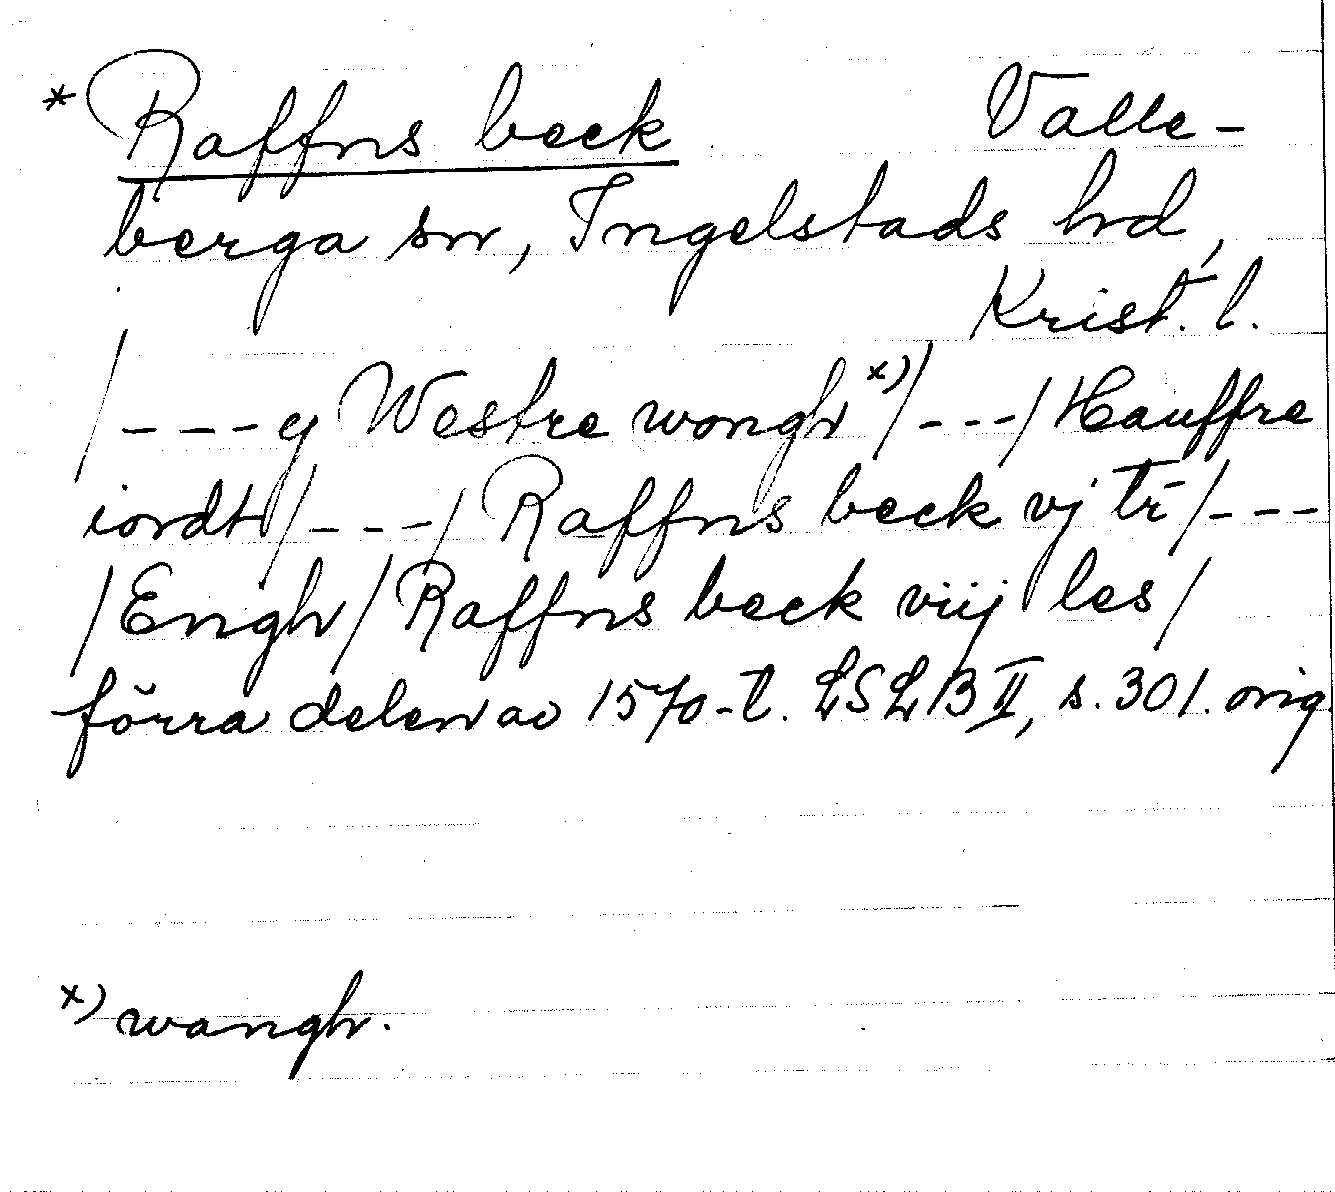 * Raffns beck Valle-
berga sn, Ingelstads hrd,
Krist. l.
/---y Westre wongh x)/---/ Hauffre
iordt/---/ Raffns beck vj tr̄/---
/Engh/ Raffns beck viij les/
förra delen av 1570-t. LSLB II, s. 301. orig
x) wangh.